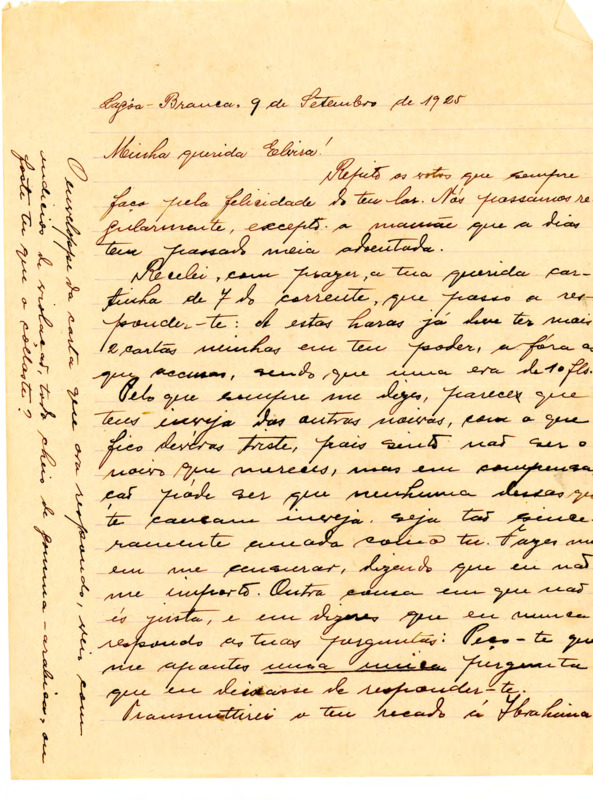 Lagôa-Branca, 9 de Setembro de 1925
Minha querida Elvira!
Repito os votos que sempre
faço pela felicidade do teu lar. Nós passamos re
gularmente, excepto a mamãe que a dias
tem passado meia adoentada.
Recebi, com prazer, a tua querida car-
tinha de 7 do corrente, que passo a res-
ponder-te: A estas horas já deve ter mais
2 cartas minhas em teu poder, a fóra as
que accusas, sendo que uma era de 10 fls.
Pelo que sempre me dizes, pareces que
tens inveja das outras noivas, com o que
fico devéras triste, pois sinto não ser o
noivo que mereces, mas em compensa
ção póde ser que nenhuma dessas que
te causam inveja, seja tão since-
ramente amada como tu. Fazes mal
em me censurar, dizendo que eu não
me importo. Outra cousa em que não
és justa, e em dizeres que eu nunca
respondo as tuas perguntas: Peço-te que
me apontes uma unica pergunta
que eu deixasse de responder-te.
Transmittirei o teu recado á Ibrahima
O enveloppe da carta que ora respondo, veio com
indicios de violação, todo cheio de gomma-arabica, ou
foste tu que o collaste?